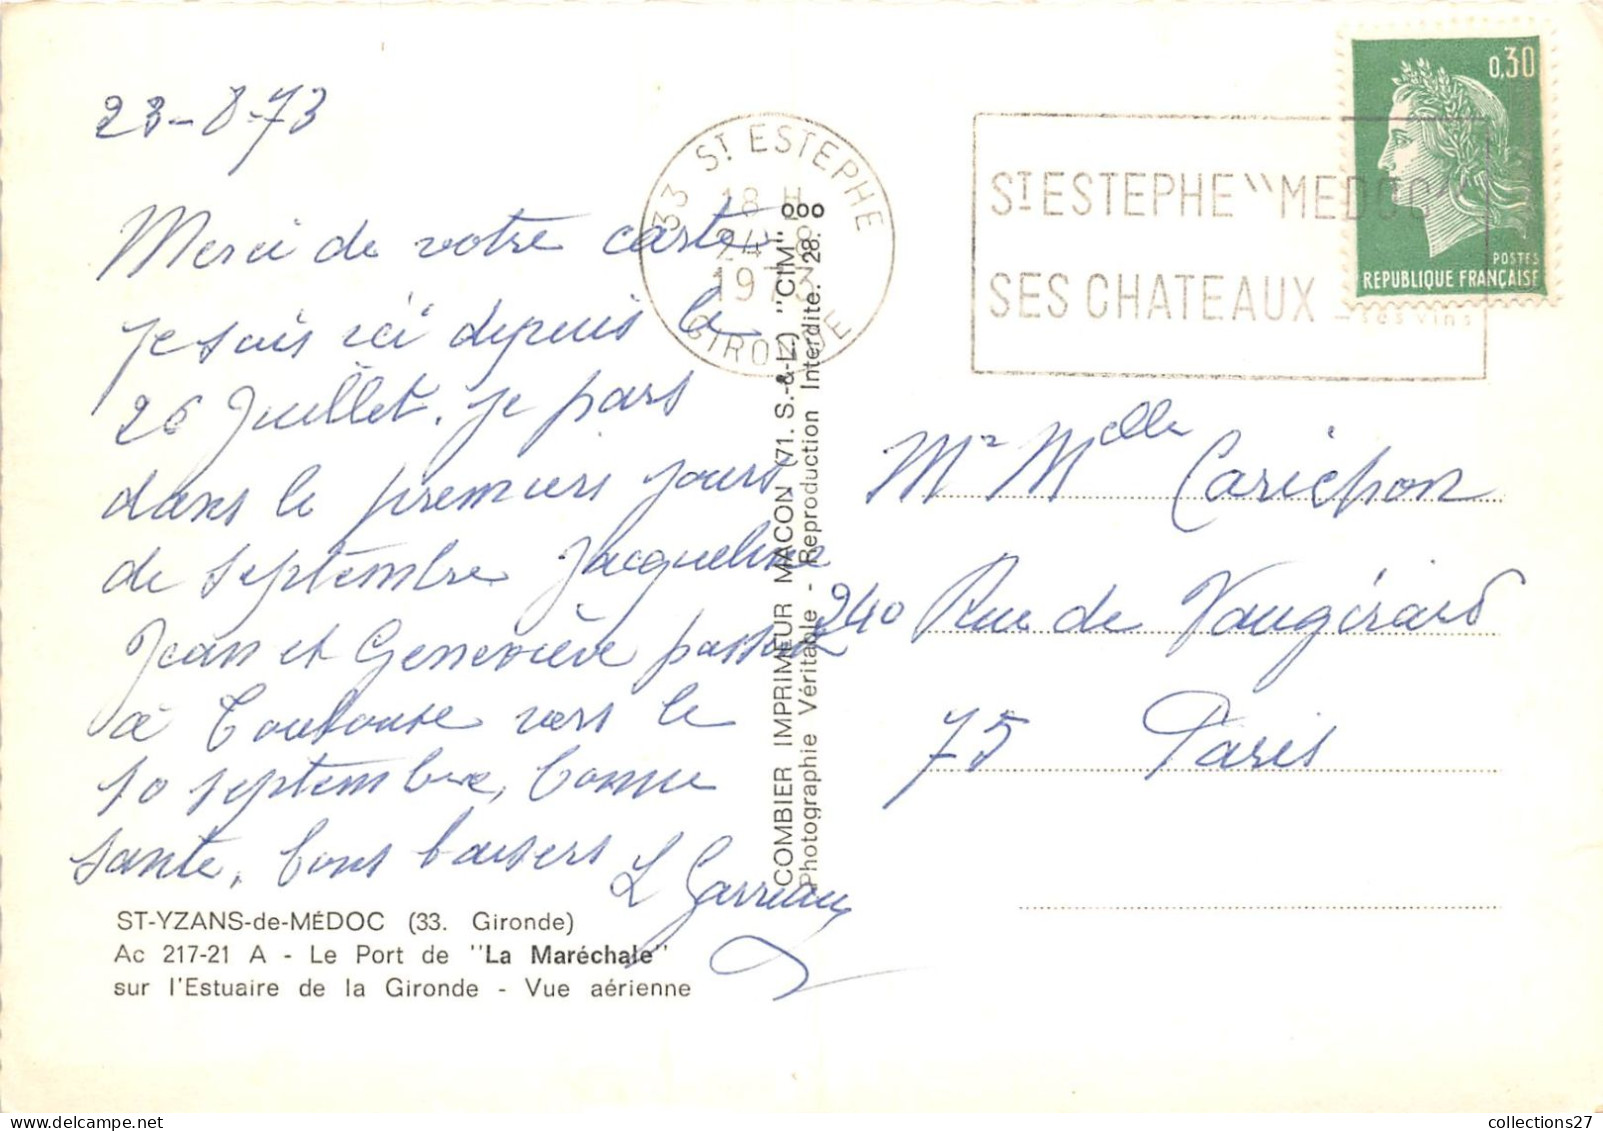 23-8-73
Merci de votre carte
je suis ici depuis le
26 Juillet. je pars
dans le premiers jours
de septembre Jacqueline
Jean et Geneviève passent
à Toulouse vers le
10 septembre, bonne
santé, bons baisers
L Garreau
ST-YZANS-de-MÉDOC (33. Gironde)
Ac 217-21 A - Le Port de "La Maréchale"
sur l'Estuaire de la Gironde - Vue aérienne
COMBIER IMPRIMEUR MACON (71. S.-&-L.) "CIM"
Photographie Véritable - Reproduction Interdite. 28.
33 ST ESTEPHE
18 H
24 - 8
1973
GIRONDE
ST ESTEPHE "MEDOC"
SES CHATEAUX _ ses vins
0,30
POSTES
REPUBLIQUE FRANÇAISE
Mr Melle Carichon
240 Rue de Vaugirard
75 Paris
collections27